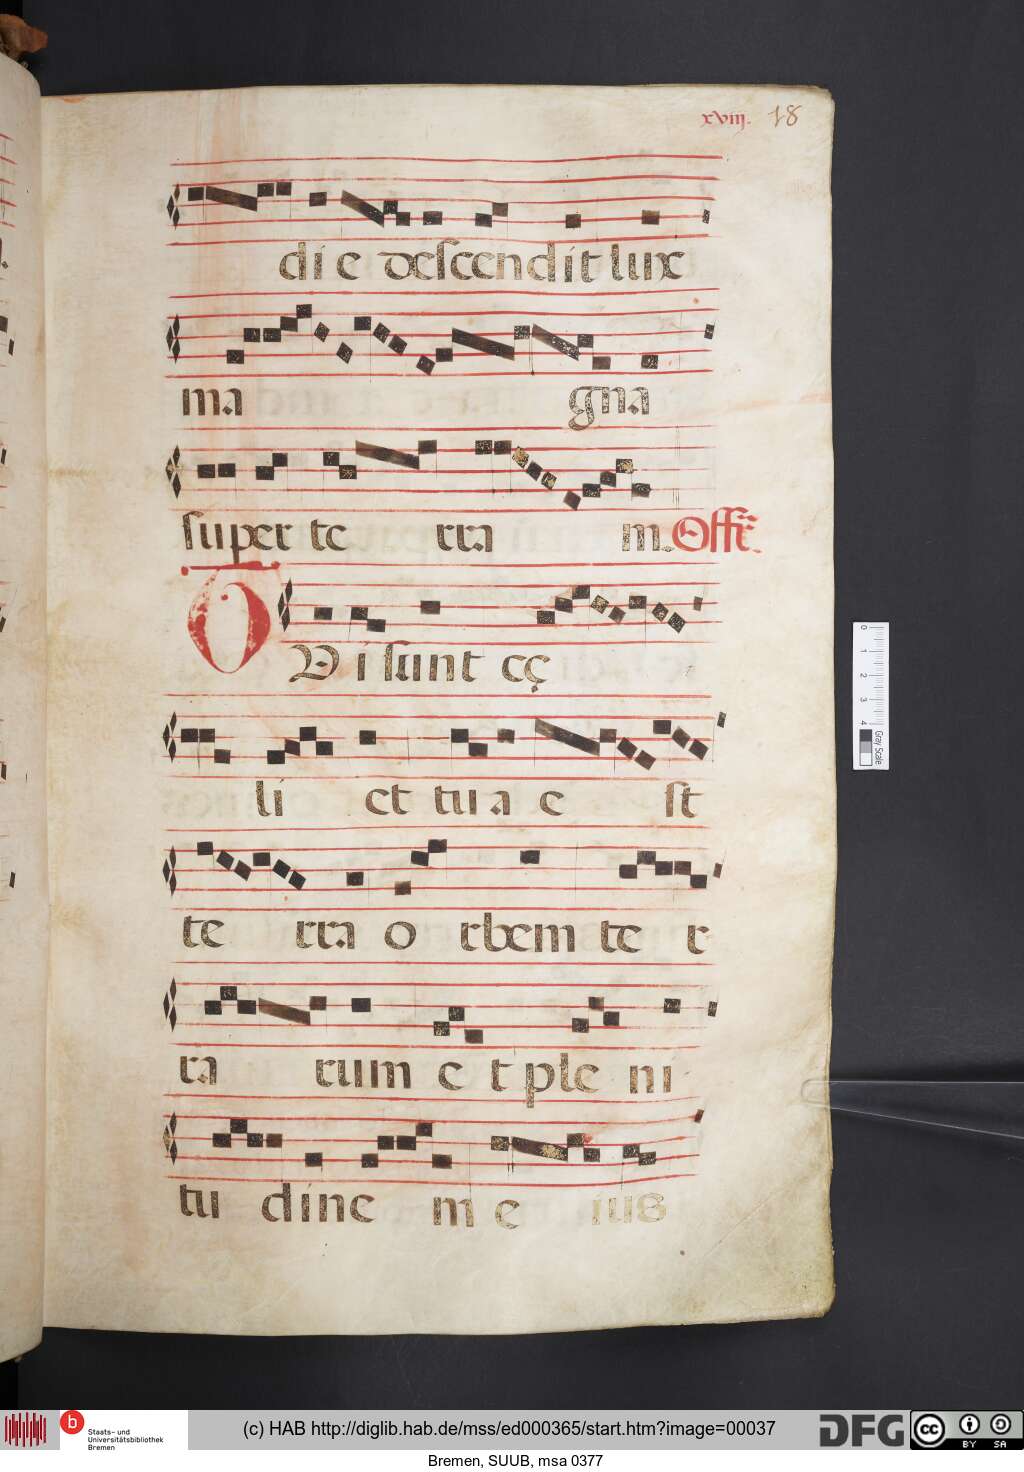 xviij. 18
die descendit lux
ma gna
super te rra m. Offr.
O
Vi sunt cę
li et tu a e st
te rra o rbem te r
ra rum e t ple ni
tu dine m e ius
0 1 2 3 4 Gray Scale
b Staats- und Universitätsbibliothek Bremen
(c) HAB http://diglib.hab.de/mss/ed000365/start.htm?image=00037
DFG
cc BY SA
Bremen, SUUB, msa 0377